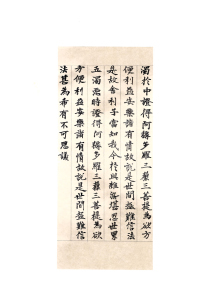 濁於中證得阿耨多羅三藐三菩提為欲方
便利益安樂諸有情故說是世間極難信法
是故舍利子當知我今於此雜染堪忍世界
五濁惡時證得阿耨多羅三藐三菩提為欲
方便利益安樂諸有情故說是世間極難信
法甚為希有不可思議